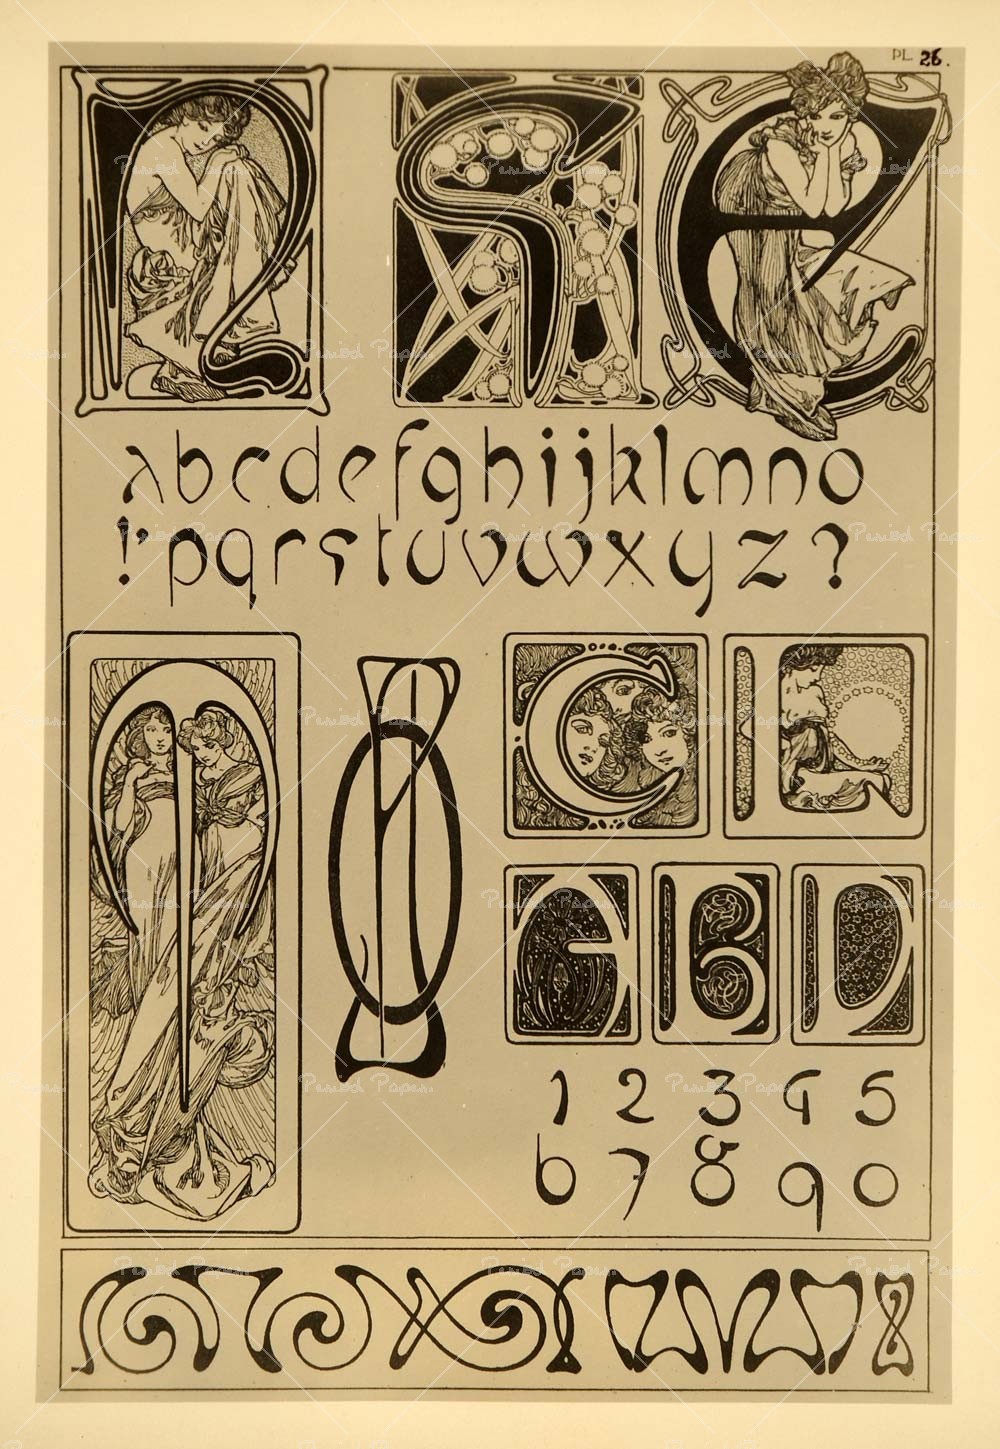 PL. 26.
n s e
abcdefghijklmno
!'pqrstuvwxyz?
C L
A B D
1 2 3 4 5
6 7 8 9 0
Period Paper.